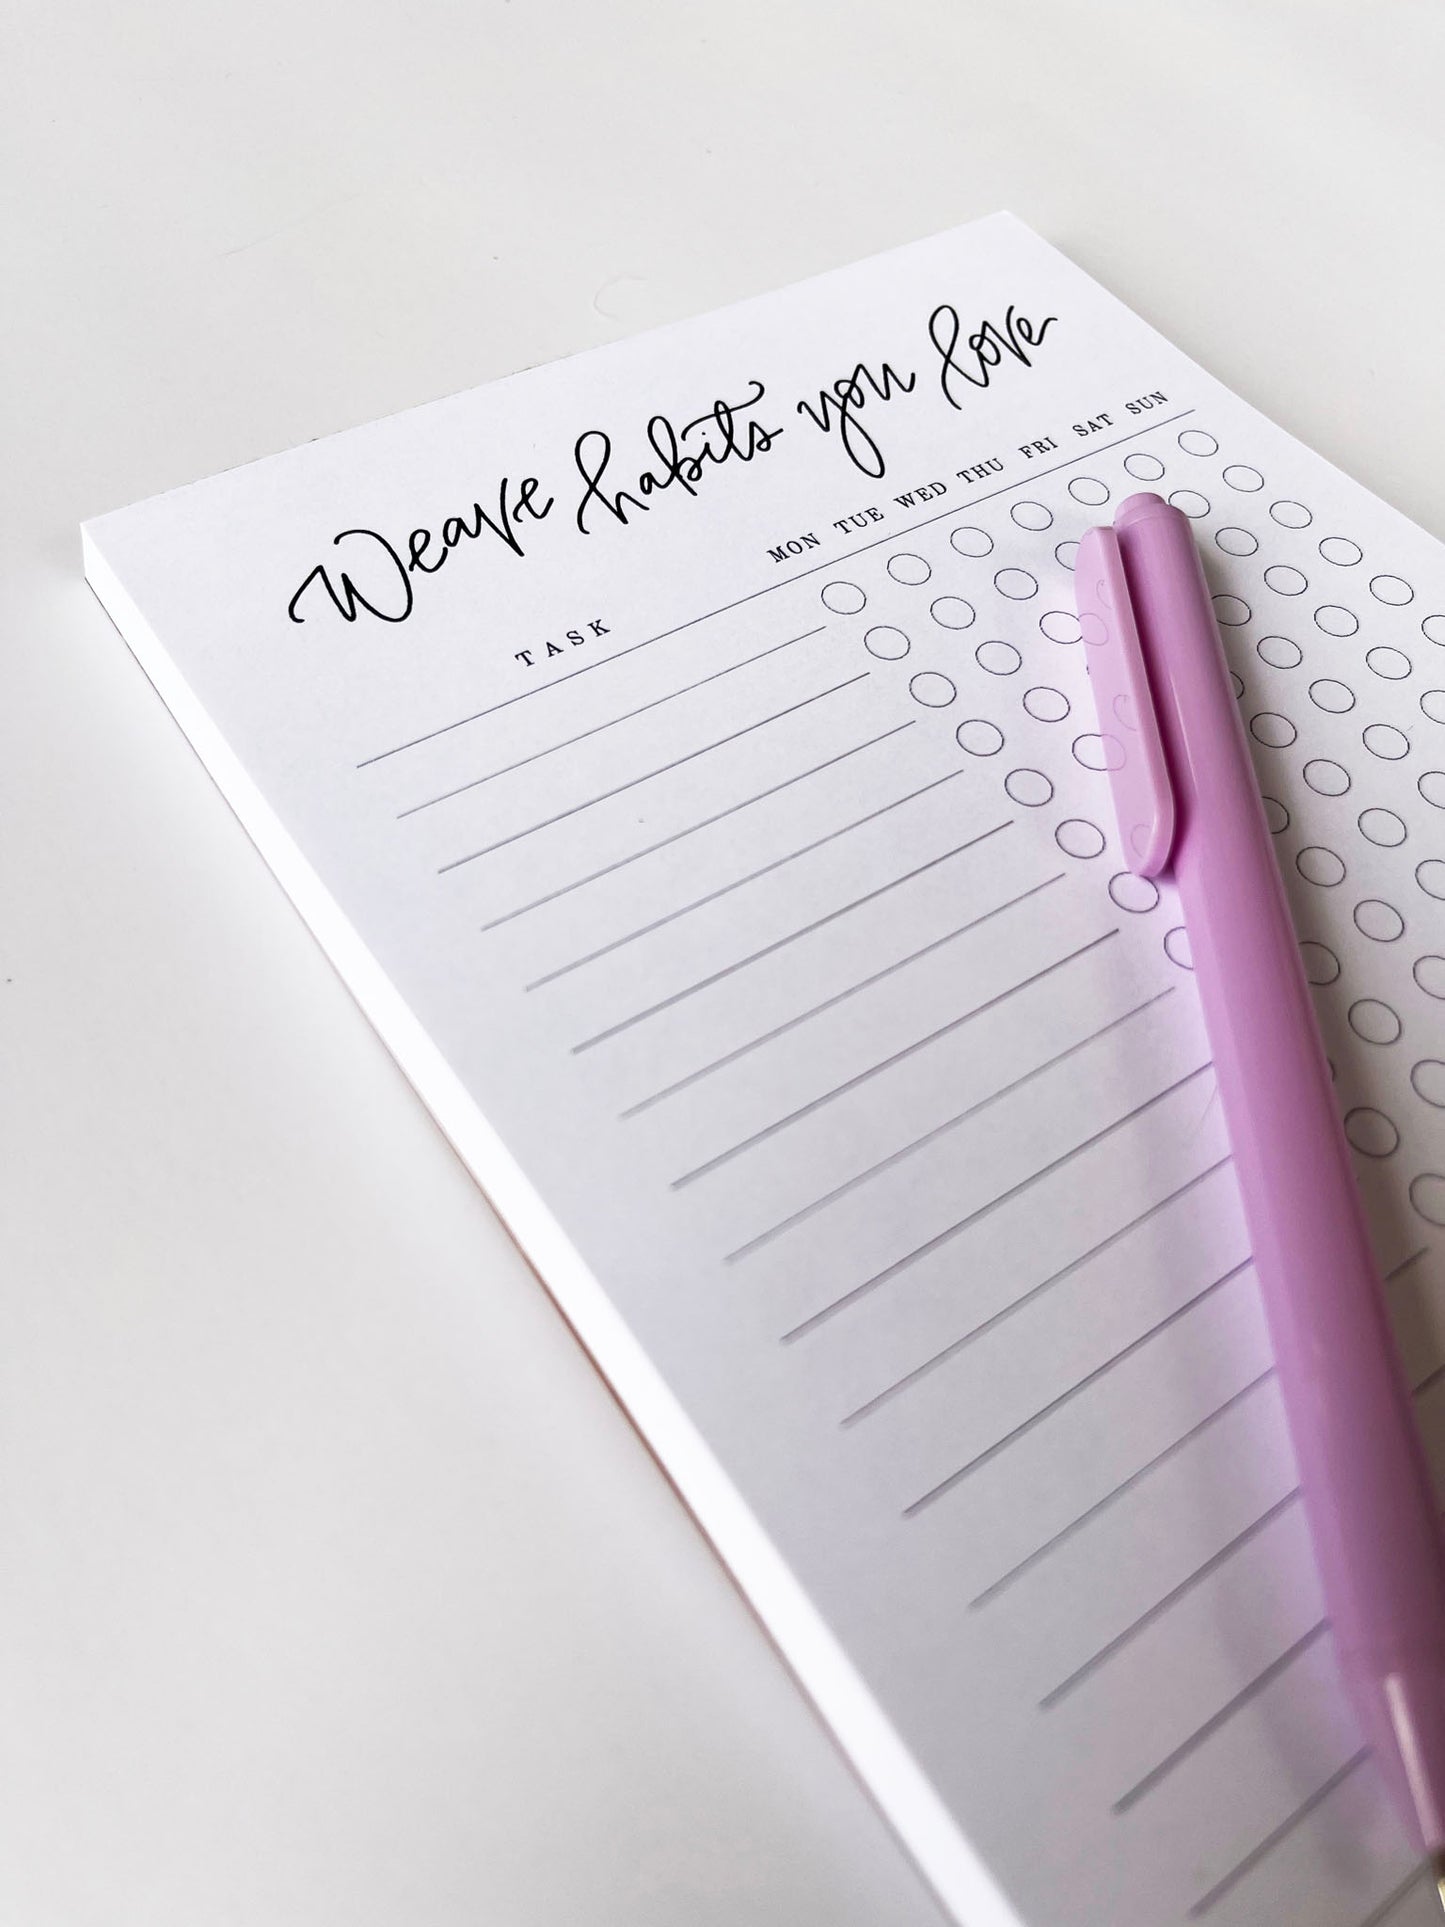 Weave habits you love
TASK MON TUE WED THU FRI SAT SUN